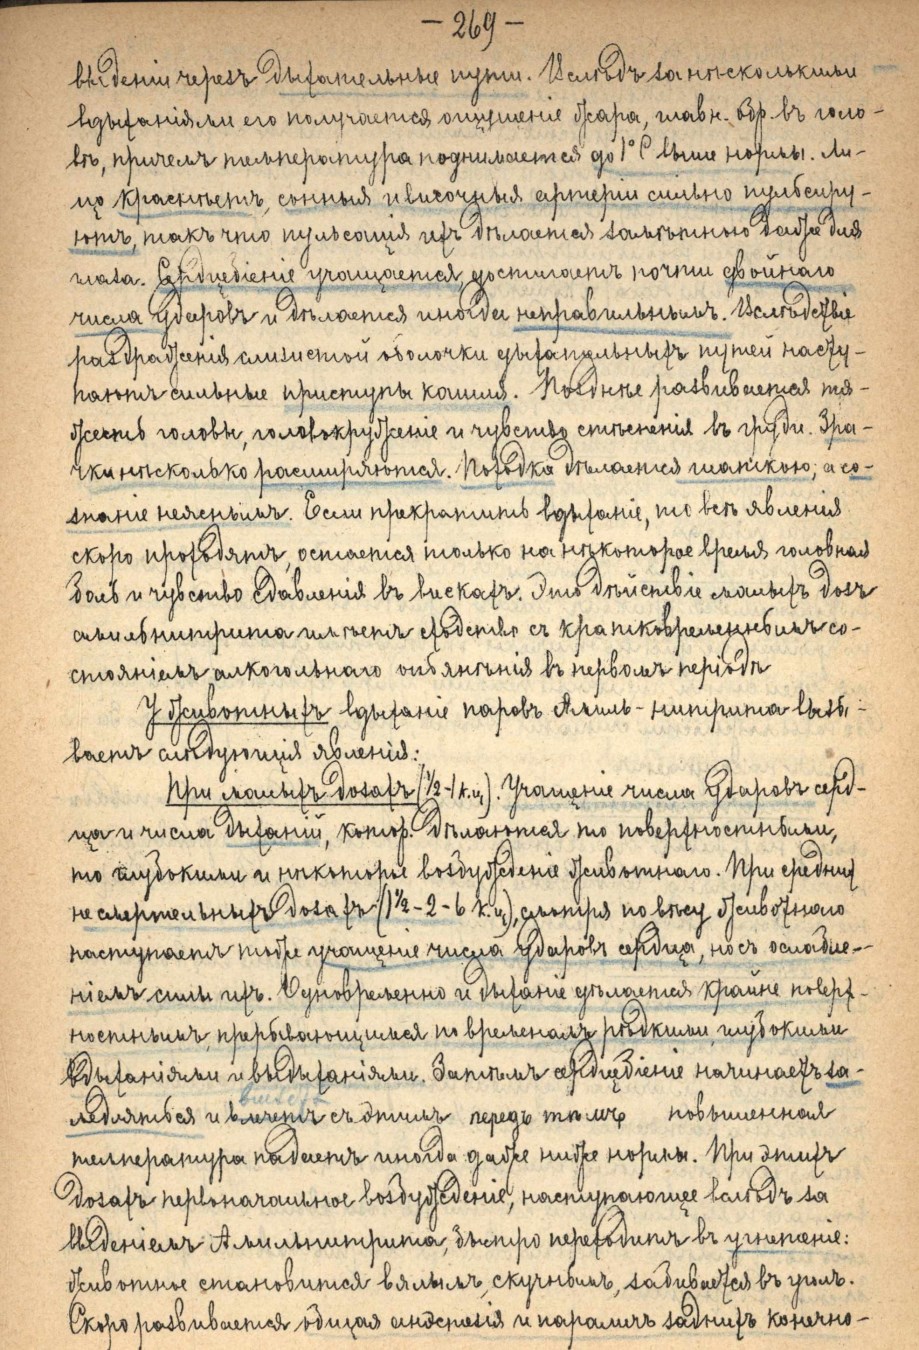 — 269 —
веденіи черезъ дыхательные пути. Вслѣдъ за нѣсколькими
вдыханіями его получается ощущеніе жара, главн. обр. въ голо-
вѣ, причемъ температура поднимается до 1° С выше нормы. Ли-
цо краснѣетъ, сонныя и височныя артеріи сильно пульсиру-
ютъ, такъ что пульсація ихъ дѣлается замѣтною даже для
глаза. Сердцебіеніе учащается, достигаетъ почти двойнаго
числа ударовъ и дѣлается иногда неправильнымъ. Вслѣдствіе
раздраженія слизистой оболочки дыхательныхъ путей насту-
паютъ сильные приступы кашля. Позднѣе развивается тя-
жесть головы, головокруженіе и чувство стѣсненія въ груди. Зра-
чки нѣсколько расширяются. Походка дѣлается шаткою, а со-
знаніе неяснымъ. Если прекратить вдыханіе, то всѣ явленія
скоро проходятъ, остается только на нѣкоторое время головная
боль и чувство сдавленія въ вискахъ. Это дѣйствіе малыхъ дозъ
амильнитрита имѣетъ сходство съ кратковременнымъ со-
стояніемъ алкогольнаго опьянѣнія въ первомъ періодѣ
У животныхъ вдыханіе паровъ Амиль-нитрита вызы-
ваетъ слѣдующія явленія:
При малыхъ дозахъ (1/2-1 к.ц). Учащеніе числа ударовъ серд-
ца и числа дыханій, котор. дѣлаются то поверхностными,
то глубокими и нѣкоторое возбужденіе животнаго. При среднихъ
не смертельныхъ дозахъ (1 1/2 - 2 - 6 к.ц), смотря по вѣсу животнаго
наступаетъ тоже учащеніе числа ударовъ сердца, но съ ослабле-
ніемъ силы ихъ. Одновременно и дыханіе дѣлается крайне поверх-
ностнымъ, прерывающимся по временамъ рѣдкими глубокими
вдыханіями и выдыханіями. Затѣмъ сердцебіеніе начинаетъ за-
медляться и влечетъ съ этимъ передъ тѣмъ повышенная
температура падаетъ иногда даже ниже нормы. При этихъ
дозахъ первоначальное возбужденіе, наступающее вслѣдъ за
введеніемъ Амильнитрита, быстро переходитъ въ угнетеніе:
животное становится вялымъ, скучнымъ, забивается въ уголъ.
Скоро развивается общая анэстезія и параличъ заднихъ конечно-